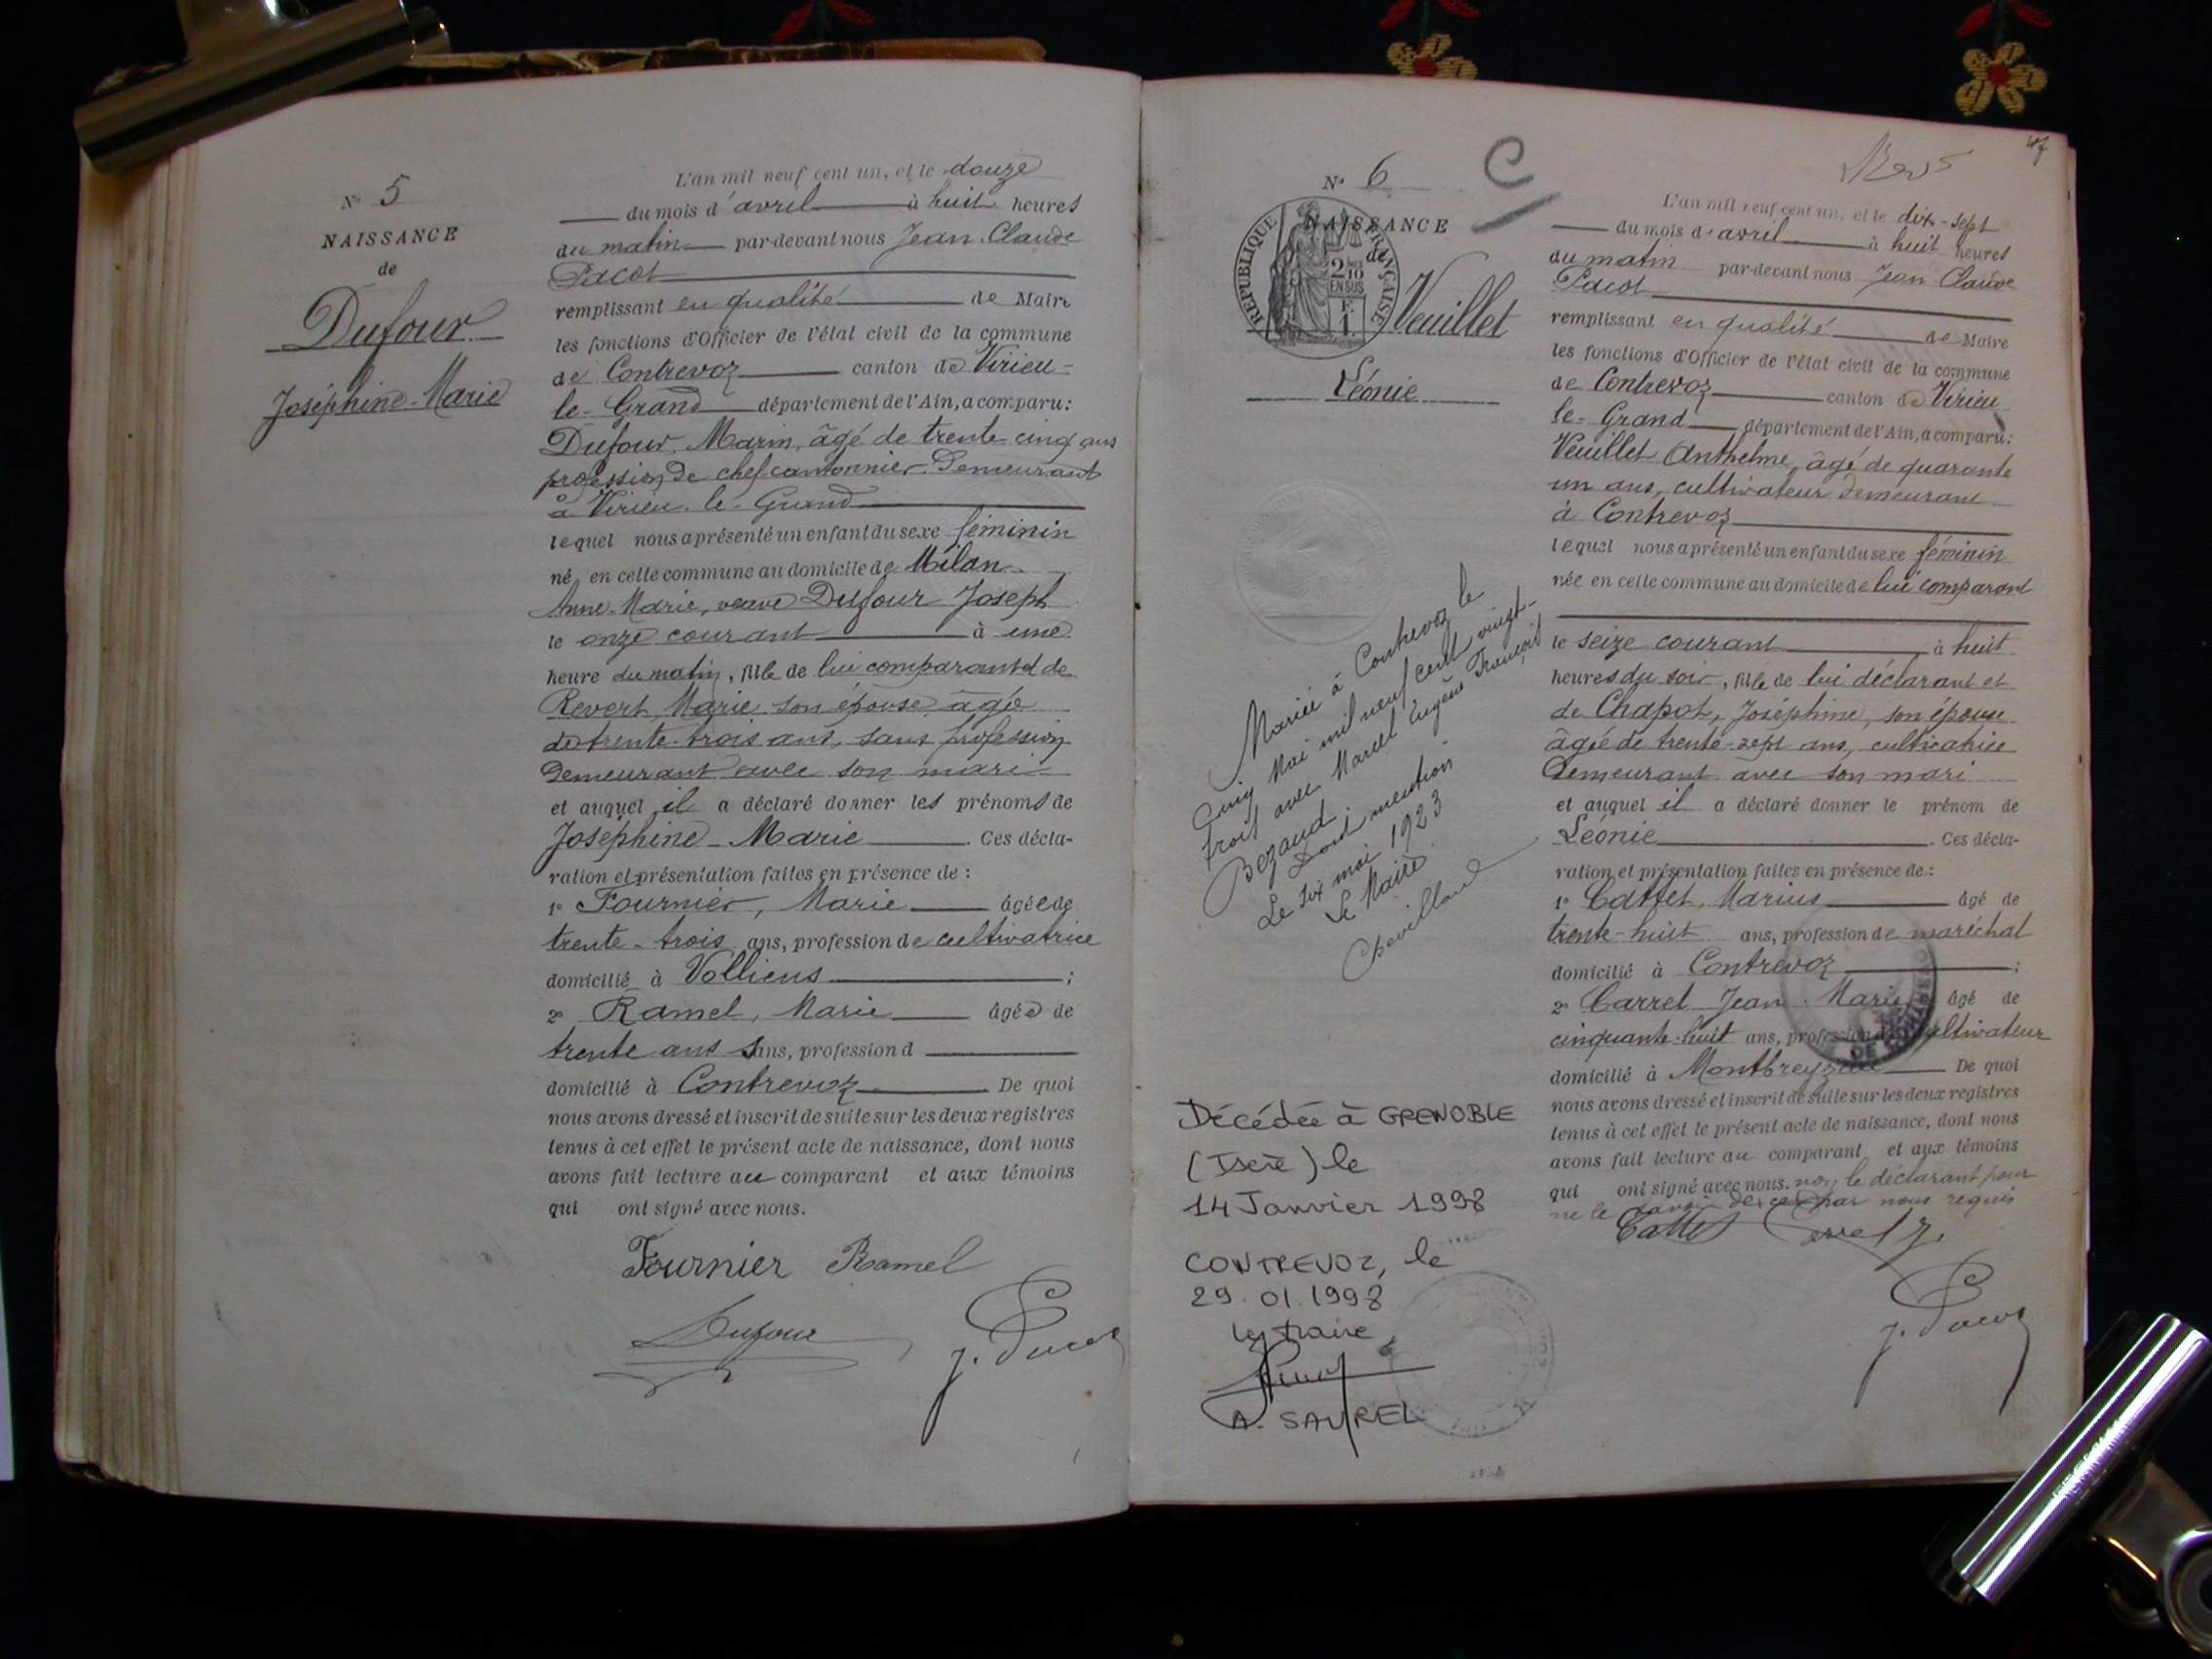 N° 5
NAISSANCE
de
Dufour
Joséphine-Marie
L'an mil neuf cent un, et le douze
du mois d'avril à huit heures
du matin par-devant nous Jean-Claude
Pacot
remplissant en qualité de Maire
les fonctions d'Officier de l'état civil de la commune
de Contrevoz canton de Virieu-
le-Grand département de l'Ain, a comparu:
Dufour, Marin, âgé de trente cinq ans
profession de chef cantonnier Demeurant
à Virieu-le-Grand
lequel nous a présenté un enfant du sexe féminin
né en cette commune au domicile de Milan
Anne-Marie, veuve Dufour Joseph
le onze courant à une
heure du matin, fille de lui comparant et de
Revert, Marie son épouse, âgée
de trente-trois ans, sans profession
Demeurant avec son mari
et auquel il a déclaré donner les prénoms de
Joséphine-Marie. Ces décla-
ration et présentation faites en présence de :
1° Fournier, Marie âgée de
trente-trois ans, profession de cultivatrice
domicilié à Volliens ;
2° Ramel, Marie âgée de
trente ans sans, profession d
domicilié à Contrevoz. De quoi
nous avons dressé et inscrit de suite sur les deux registres
tenus à cet effet le présent acte de naissance, dont nous
avons fait lecture au comparant et aux témoins
qui ont signé avec nous.
Fournier Ramel
Dufour J. Pacot
47
N° 6 C
NAISSANCE
de
REPUBLIQUE FRANÇAISE
2/10
EN SUS
F.
1.
Veuillet
Léonie
Mariée à Contrevoz le
cinq Mai mil neuf cent vingt-
trois avec Marcel Eugène François
Bezaud
Dont mention
Le six mai 1923
Le Maire
Chevilland
Décédée à GRENOBLE
(Isère) le
14 Janvier 1998
CONTREVOZ, le
29.01.1998
Le Maire
A. SAUREL
L'an mil neuf cent un, et le dix-sept
du mois d'avril à huit heures
du matin par-devant nous Jean-Claude
Pacot
remplissant en qualité de Maire
les fonctions d'Officier de l'état civil de la commune
de Contrevoz canton de Virieu
le-Grand département de l'Ain, a comparu:
Veuillet Anthelme, âgé de quarante
un ans, cultivateur demeurant
à Contrevoz
lequel nous a présenté un enfant du sexe féminin
née en cette commune au domicile de lui comparant
le seize courant à huit
heures du soir, fille de lui déclarant et
de Chapot, Joséphine, son épouse
âgée de trente-sept ans, cultivatrice
Demeurant avec son mari
et auquel il a déclaré donner le prénom de
Léonie. Ces décla-
ration et présentation faites en présence de :
1° Cattet, Marius âgé de
trente-huit ans, profession de maréchal
domicilié à Contrevoz ;
2° Carrel Jean-Marie âgé de
cinquante-huit ans, profession de cultivateur
domicilié à Montbreyzieu De quoi
nous avons dressé et inscrit de suite sur les deux registres
tenus à cet effet le présent acte de naissance, dont nous
avons fait lecture au comparant et aux témoins
qui ont signé avec nous. non le déclarant pour
ne le savoir de ce par nous requis
Cattet
J. Pacot